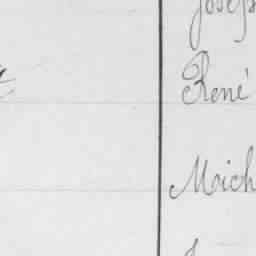 Josep
René
Mich